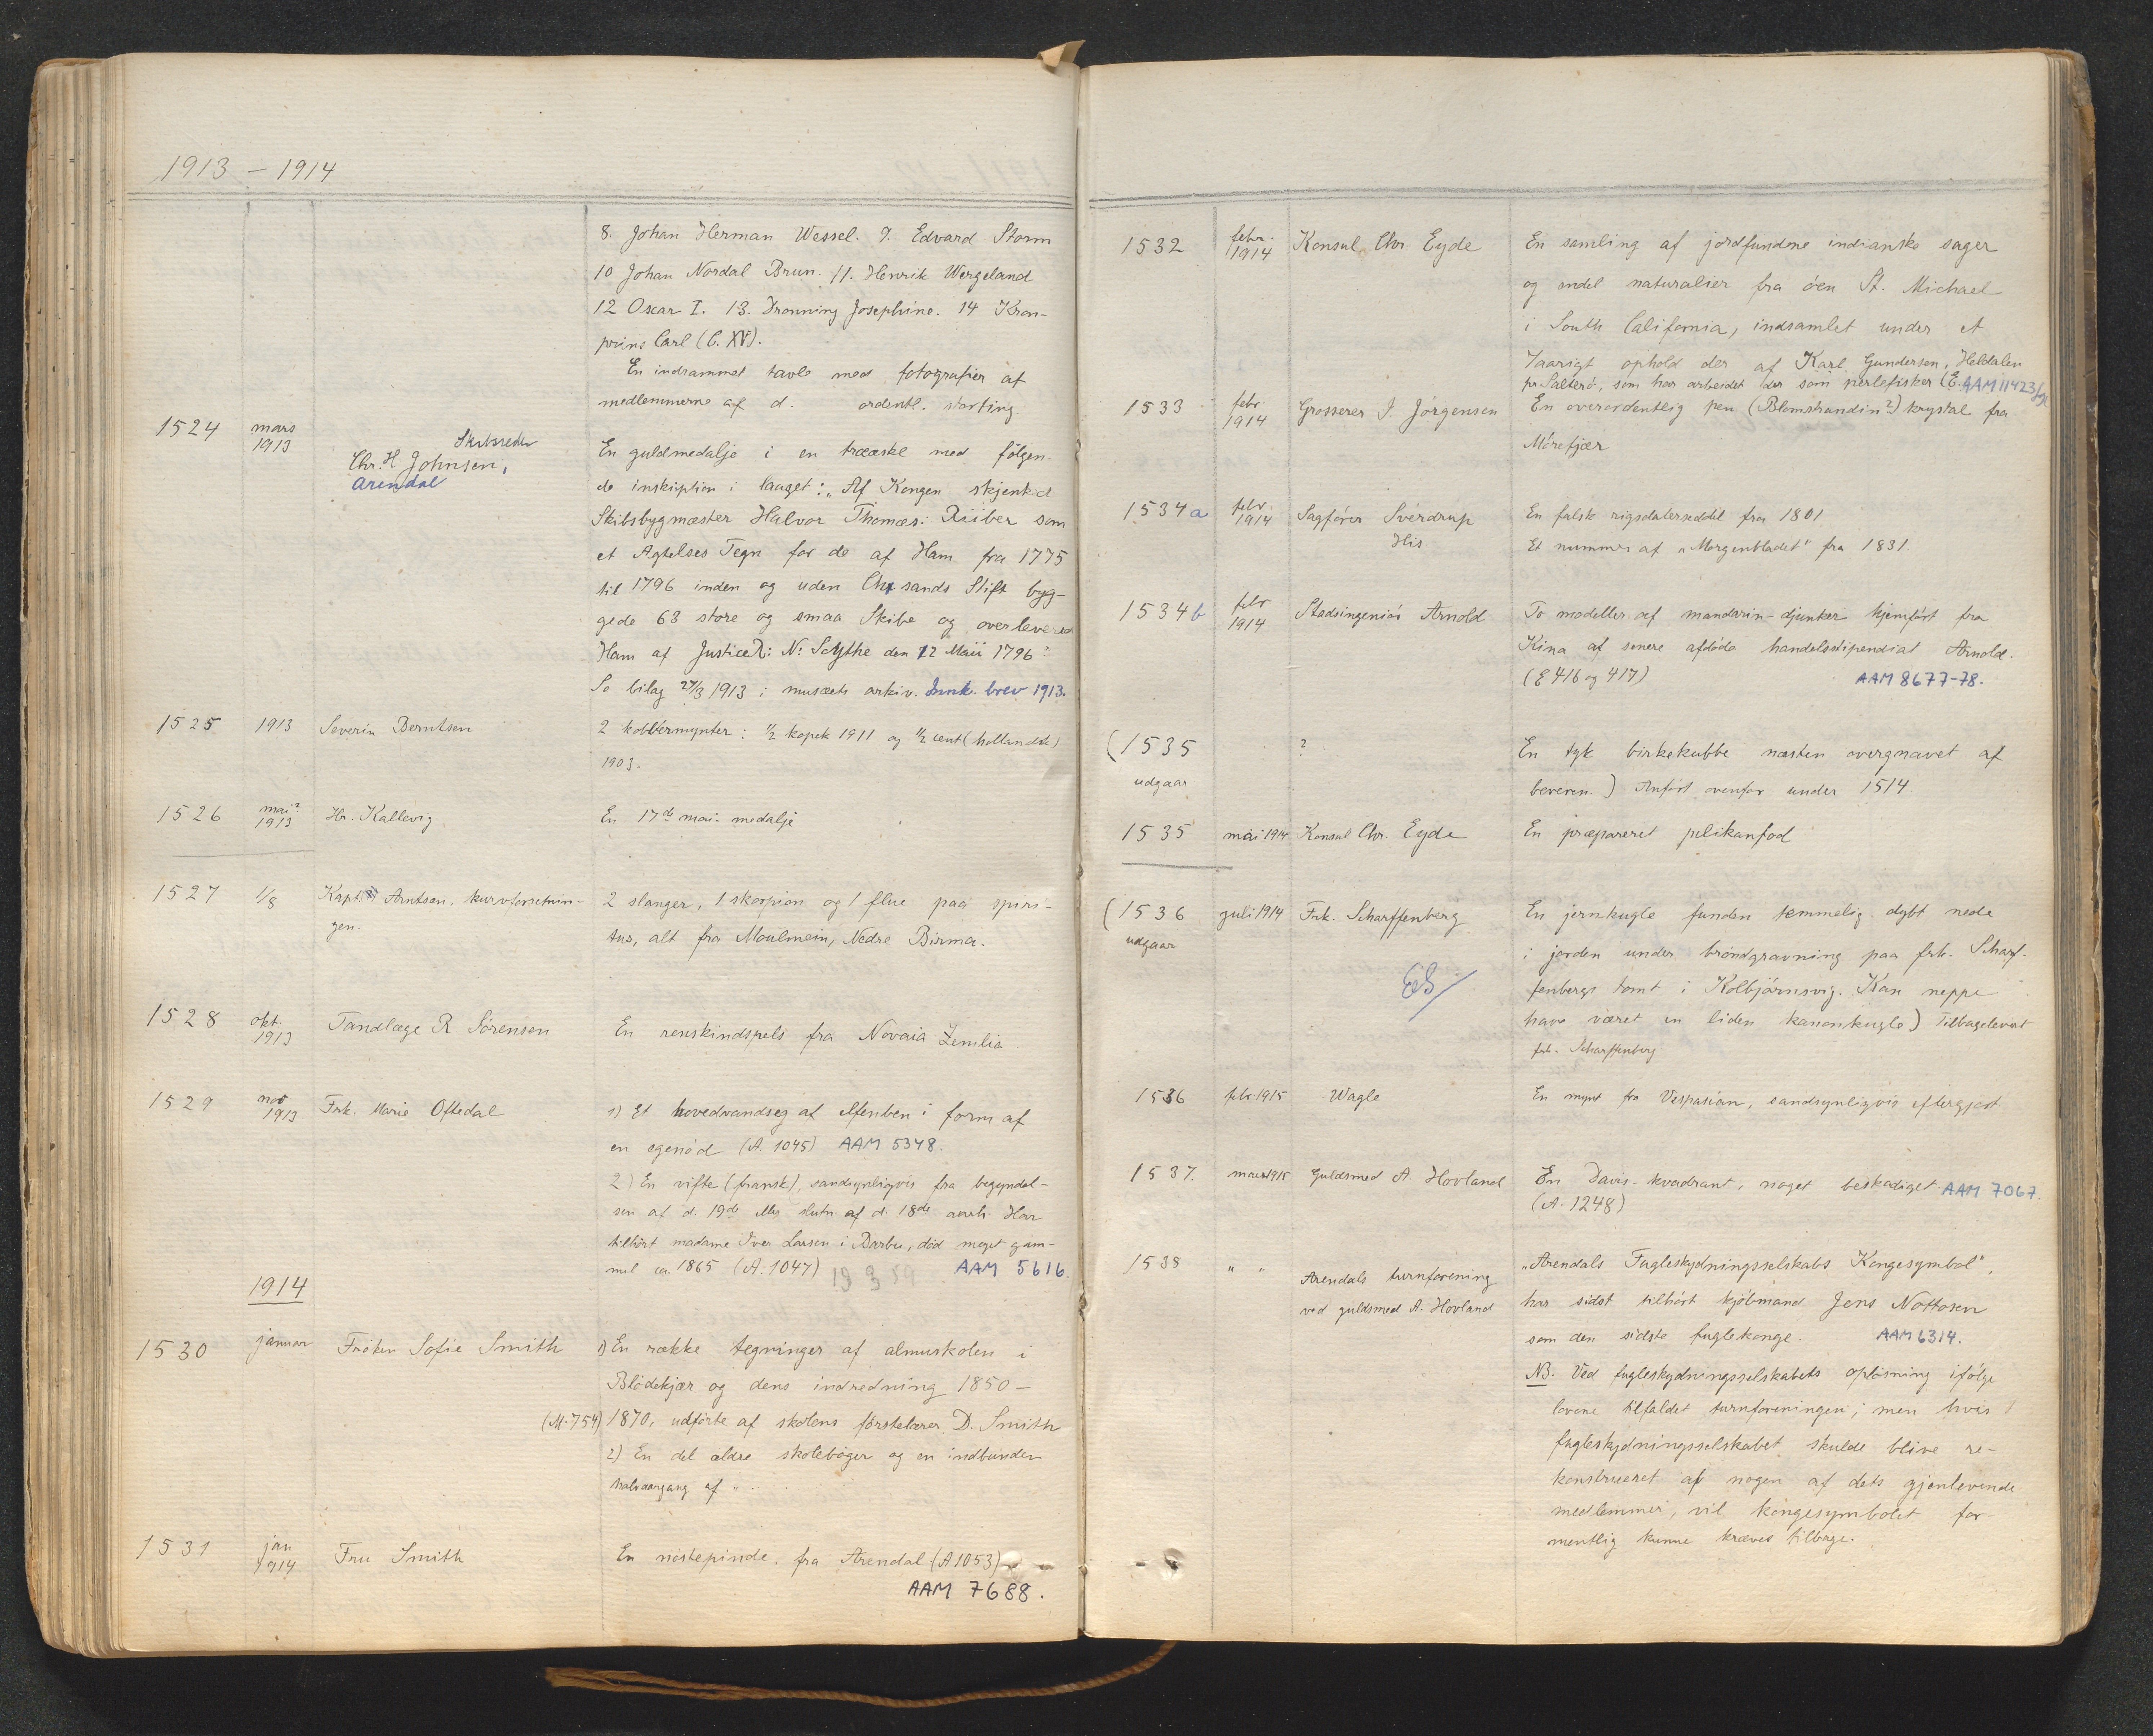 1913 – 1914
8. Johan Herman Wessel. 9. Edvard Storm
10 Johan Nordal Brun. 11. Henrik Wergeland
12 Oscar I. 13. Dronning Josephine. 14 Kron-
prins Carl (C. XV).
En indrammet tavle med fotografier af
medlemmerne af d. ordentl. storting
1524 mars 1913 Skibsreder Chr. H Johnsen, Arendal
En guldmedalje i en trææske med følgen
de inskription i lauget: „Af Kongen skjenked
Skibsbygmæster Halvor Thomæs: Riiber som
et Agtelses Tegn for de af Ham fra 1775
til 1796 inden og uden Chrsands Stift byg-
gede 63 store og smaa Skibe og overlevered
Ham af JusticeR: N: Scythe den 12 Maii 1796"
Se bilag 27/3 1913 i musæets arkiv. Innk. brev 1913.
1525 1913 Severin Berntsen 2 kobbermynter: 1/2 kopek 1911 og 1/2 cent (hollandsk)
1903.
1526 mai? 1913 Hr. Kallevig En 17de mai-medalje
1527 1/8 Kapt. Arntsen, kurvforretnin-
gen.
2 slanger, 1 skorpion og 1 flue paa spiri-
tus, alt fra Moulmein, Nedre Birma.
1528 okt. 1913 Tandlæge R Sörensen En renskindspels fra Novaia Zemlia
1529 nov 1913 Frk. Marie Oftedal 1) Et hovedvandseg af elfenben i form af
en egenød (A. 1045) AAM 5348.
2) En vifte (fransk), sandsynligvis fra begyndel-
sen af d. 19de eller slutn. af d. 18de aarh. Har
tilhört madame Iver Larsen i Barbu, död meget gam-
mel ca. 1865 (A. 1047) AAM 5616.
1914
1530 januar Fröken Sofie Smith 1) En række tegninger af almuskolen i
Blödekjær og dens indredning 1850 –
(M. 754) 1870, udförte af skolens förstelærer D. Smith
2) En del ældre skoleböger og en indbunden
halvaargang af „
1531 jan 1914 Fru Smith En nöstepinde, fra Arendal (A 1053)
AAM 7688.
1532 febr. 1914 Konsul Chr. Eyde En samling af jordfundne indianske sager
og endel naturalier fra öen St. Michael
i South California, indsamlet under et
7aarigt ophold der af Karl Gundersen, Heldalen
pr. Salterö, som har arbeidet der som perlefisker (E. AAM 11423
1533 febr 1914 Grosserer J. Jörgensen En overordentlig pen (Blomstrandin?) krystal fra
Mörefjær
1534a febr. 1914 Sagförer Sverdrup
His
En falsk rigsdalerseddel fra 1801
Et nummer af „Morgenbladet" fra 1831.
1534b febr 1914 Stadsingeniör Arnold To modeller af mandarin-djunker hjemfört fra
Kina af senere afdöde handelsstipendiat Arnold.
(E 416 og 417) AAM 8677-78.
(1535 ? En tyk birkekubbe næsten overgnavet af
udgaar beveren.) Anfört ovenfor under 1514
1535 mai 1914 Konsul Chr. Eyde En præpareret pelikanfod
(1536 juli 1914 Frk. Scharffenberg En jernkugle funden temmelig dybt nede
udgaar i jorden under bröndgravning paa frk. Scharf-
fenbergs tomt i Kolbjörnsvig. Kan neppe
have været en liden kanonkugle) Tilbagelevert
frk. Scharffenberg
1536 febr. 1915 Wagle En mynt fra Vespasian, sandsynligvis eftergjort.
1537. mars 1915 Guldsmed A. Hovland En Davis-kvadrant, noget beskadiget. AAM 7067.
(A. 1248)
1538 " " Arendals turnforening
ved guldsmed A. Hovland
„Arendals Fugleskydningsselskabs Kongesymbol",
har sidst tilhört kjöbmand Jens Nottosen
som den sidste fuglekonge. AAM 6314.
NB. Ved fugleskydningsselskabets oplösning ifölge
lovene tilfaldet turnforeningen; men hvis
fugleskydningsselskabet skulde blive re-
konstrueret af nogen af dets gjenlevende
medlemmer, vil kongesymbolet for-
mentlig kunne kræves tilbage.